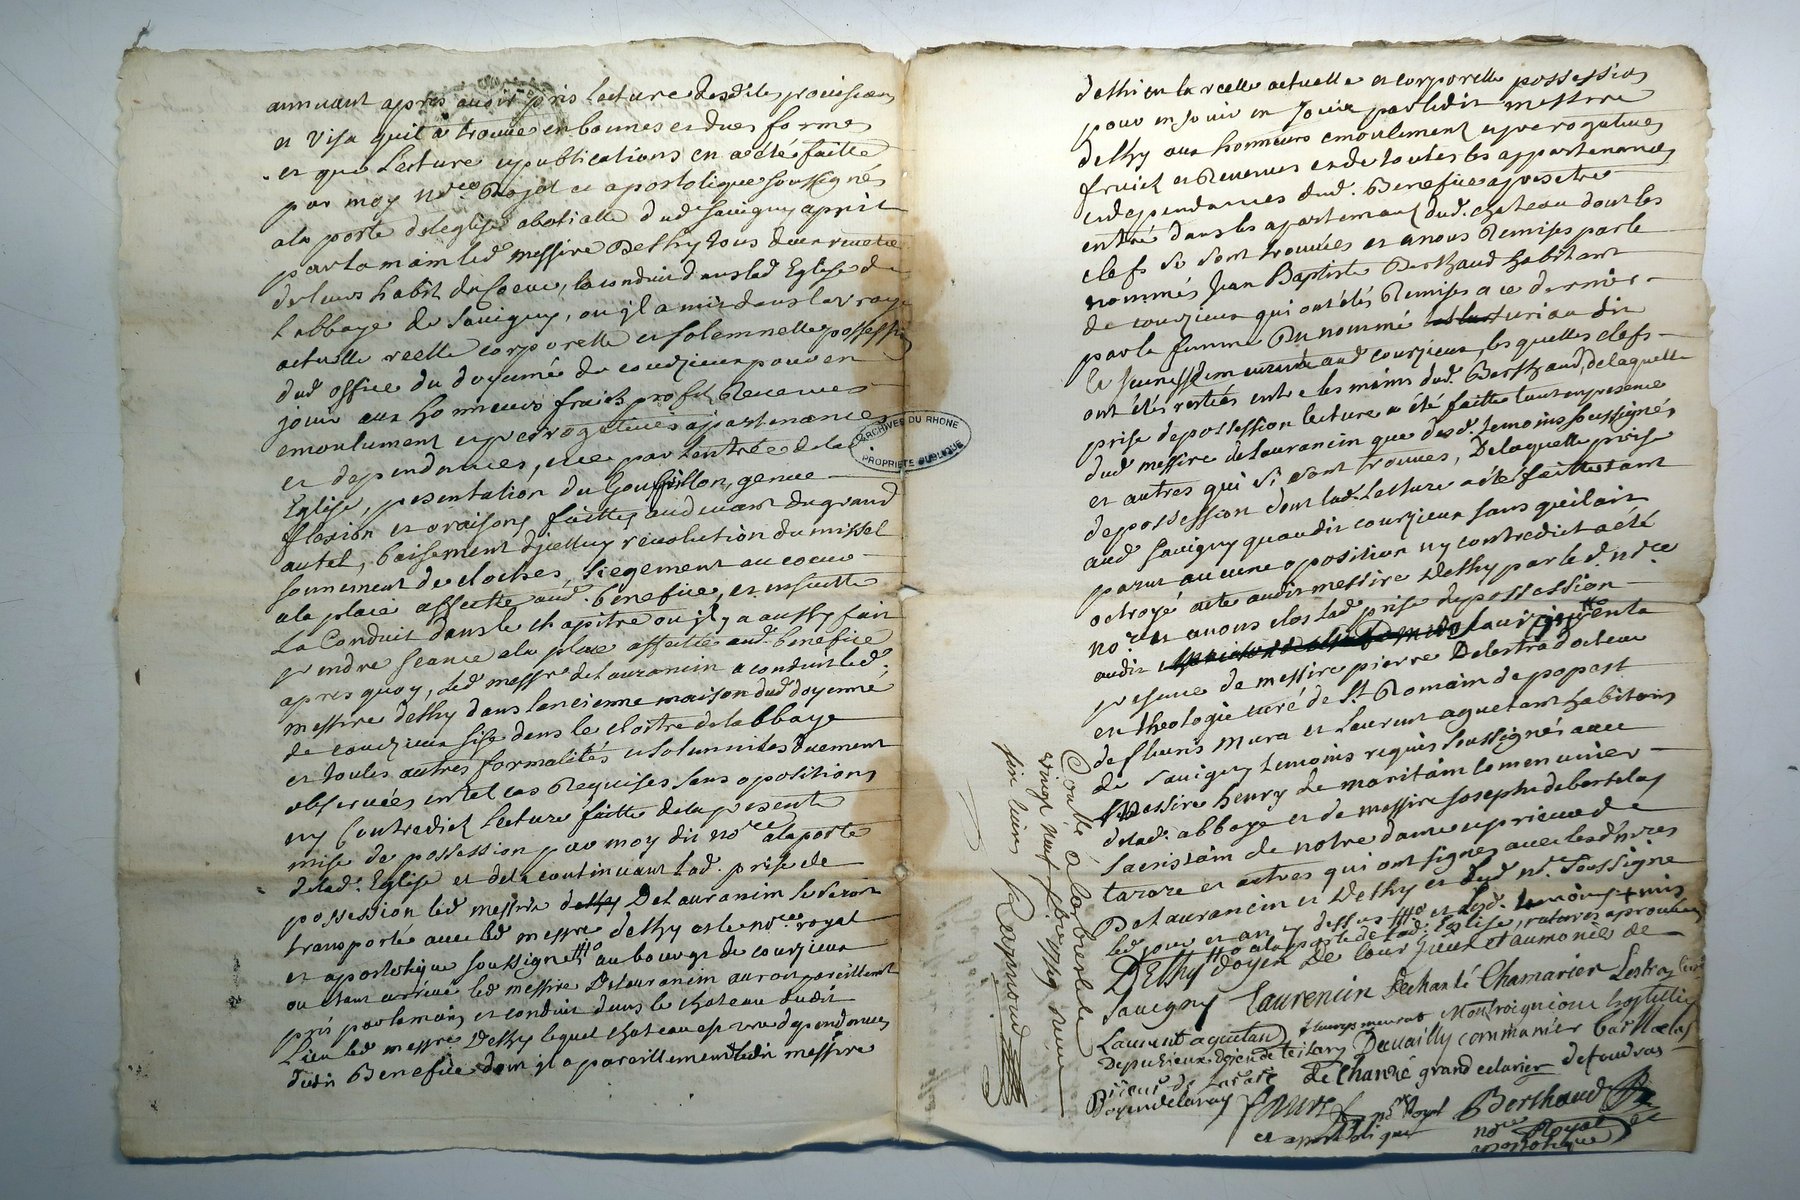 annuant apres avoir pris lecture desdites provisions
et visa quil a trouvé en bonnes et dues formes
et que lecture et publications en a été faitte
par moy nore Royal et apostolique soussignés
a la porte de leglise abatialle dud savigny a pris
par la main led messire Dethy tous deux revetus
de leurs habit de Coeur, la conduit dans lad Eglise de
labbaye de Savigny, ou il a mis dans la vraye
actuelle reelle corporelle et solemnelle possession
dud office du doyenné de courzieux pour en
jouir aux honneurs fruits profits Revenues
emoulument et prerogatives apartenances
et dependances, et ce par lentrée de la
Eglise, presentation du Goupillon, genue
flexion et oraisons faittes au devant du grand
autel, baisement dicelluy revolution du missel
sonnement de cloches, siegement au coeur
a la place affectée aud. benefice, et ensuitte
La Conduit dans le chapitre ou il y a aussy fait
prendre seance a la place affectée aud. benefice
apres quoy, led messre de Laurancin a conduit led.
messire dethy dans lancienne maison dud doyenné
de courzieux sise dans le cloitre de labbaye
et toutes autres formalités et solemnités duement
observées en tel cas Requises sans opositions
ny Contredict lecture faitte de la presente
mise de possession par moy dit nore a la porte
de lad. Eglise et de la continuant lad. prise de
possession led messire dethy De Laurancin se seroit
transporté avec led messre dethy et le nore royal
et apostolique soussigné au bourg de courzieux
ou etant arrivé led messre De Laurancin auroit pareillement
pris par la main et conduit dans le chateau dudit
Lieu led messre Dethy lequel chateau est une dependance
dudit Benefice dont il a pareillement ledit messire
dethi en la reelle actuelle et corporelle possession
pour en jouir en Jouir par ledit messire
dethy aux honneurs emoulement et prerogatives
fruict et Revenues et de toutes les appartenances
et dependances dud. Benefice apres etre
entré dans les apartemens dud. chateau dont les
clefs se sont trouvées et a nous Remises par le
nommés Jean Baptiste Berthaud habitant
de courzieux qui ont étés Remises a ce dernier
par la femme Du nommé
le jeune aud courzieux, les quelles clefs
ont étés restées entre les mains dud. Berthaud, de laquelle
prise de possession lecture a été faitte tant en presence
dud messire de Laurancin que desd. temoins soussignés
et autres qui si sont trouvés, De laquelle prise
de possession dont lad. Lecture a été faitte tant
aud Savigny quaudit courzieux sans quil ait
parut aucune oposition ny contredict a été
octroyé acte audit messire Dethy par led. nore
nore et avons clos lad prise de possession
audit en la
presence de messire pierre Delestra docteur
en theologie curé de St Romain de popast
de fleuris mura et Laurent aguetant habitans
de Savigny temoins requis soussignés avec
Messire henry de maritain
de lad. abbaye et de messire Joseph de bertelas
Sacristain de notre dame et prieure de
tarare et autres qui ont signes avec lesd messres
De Laurancin et Dethy et dud nre. soussigné
led jour et an y dessus et
a la porte de lad. Eglise, aprouvés
DEthy doyen De Courzieux et aumonier de
Savigny Laurencin Dechanté Chamarier Lestra Curé
Laurent aguetan fleurys meurat Montroignion hostellier
Depuzieux doien de teilan Duvailly communier barthelas
Prieur de tarare de Chanzé grand celarier defoudras
Doyen de Lavay faure nore Royal Berthaud
et apostolique nore Royal
apostolique
Controllé a larbresle le
vingt neuf 9bre 1749 receu
six livres
Raymond
ARCHIVES DU RHONE
PROPRIETE PUBLIQUE